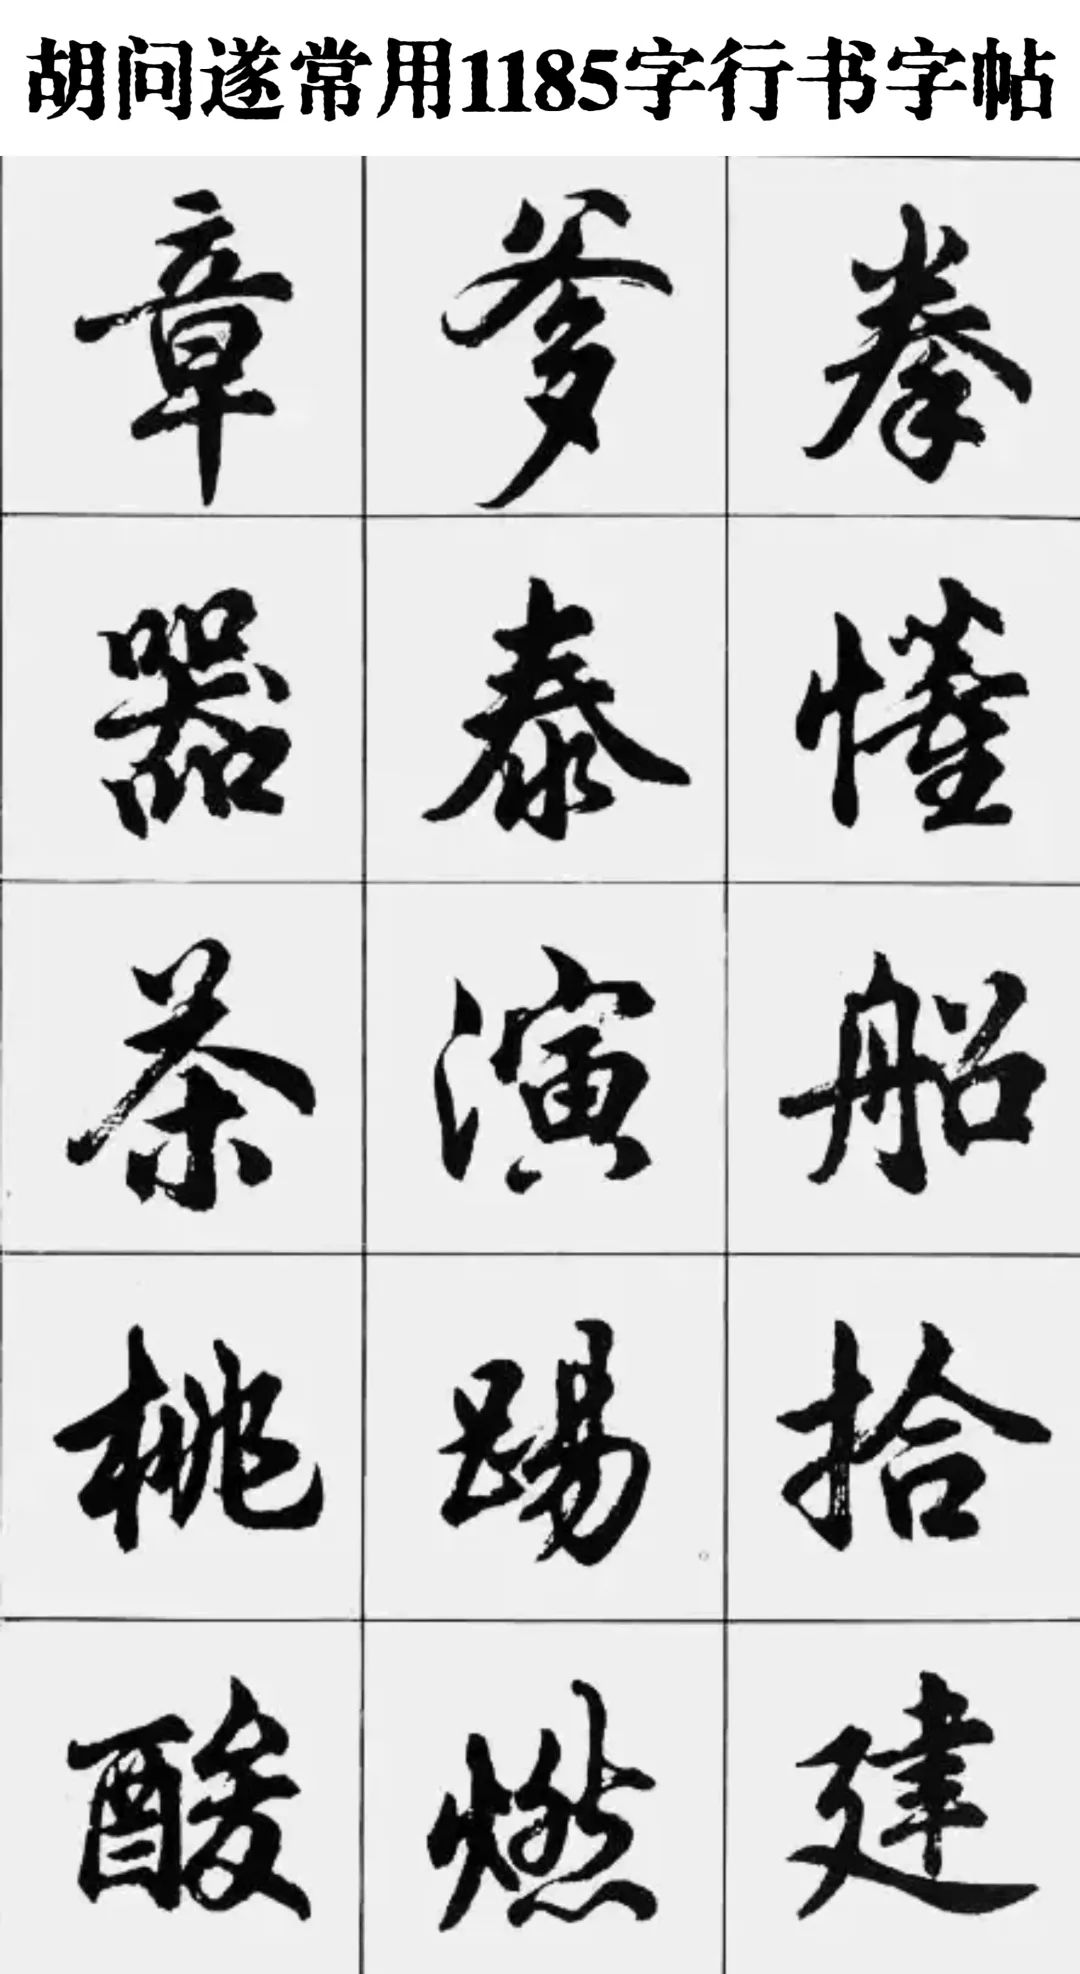 胡问遂常用1185字行书字帖
章爹拳
器泰懂
茶演船
桃踢拾
酸燃建